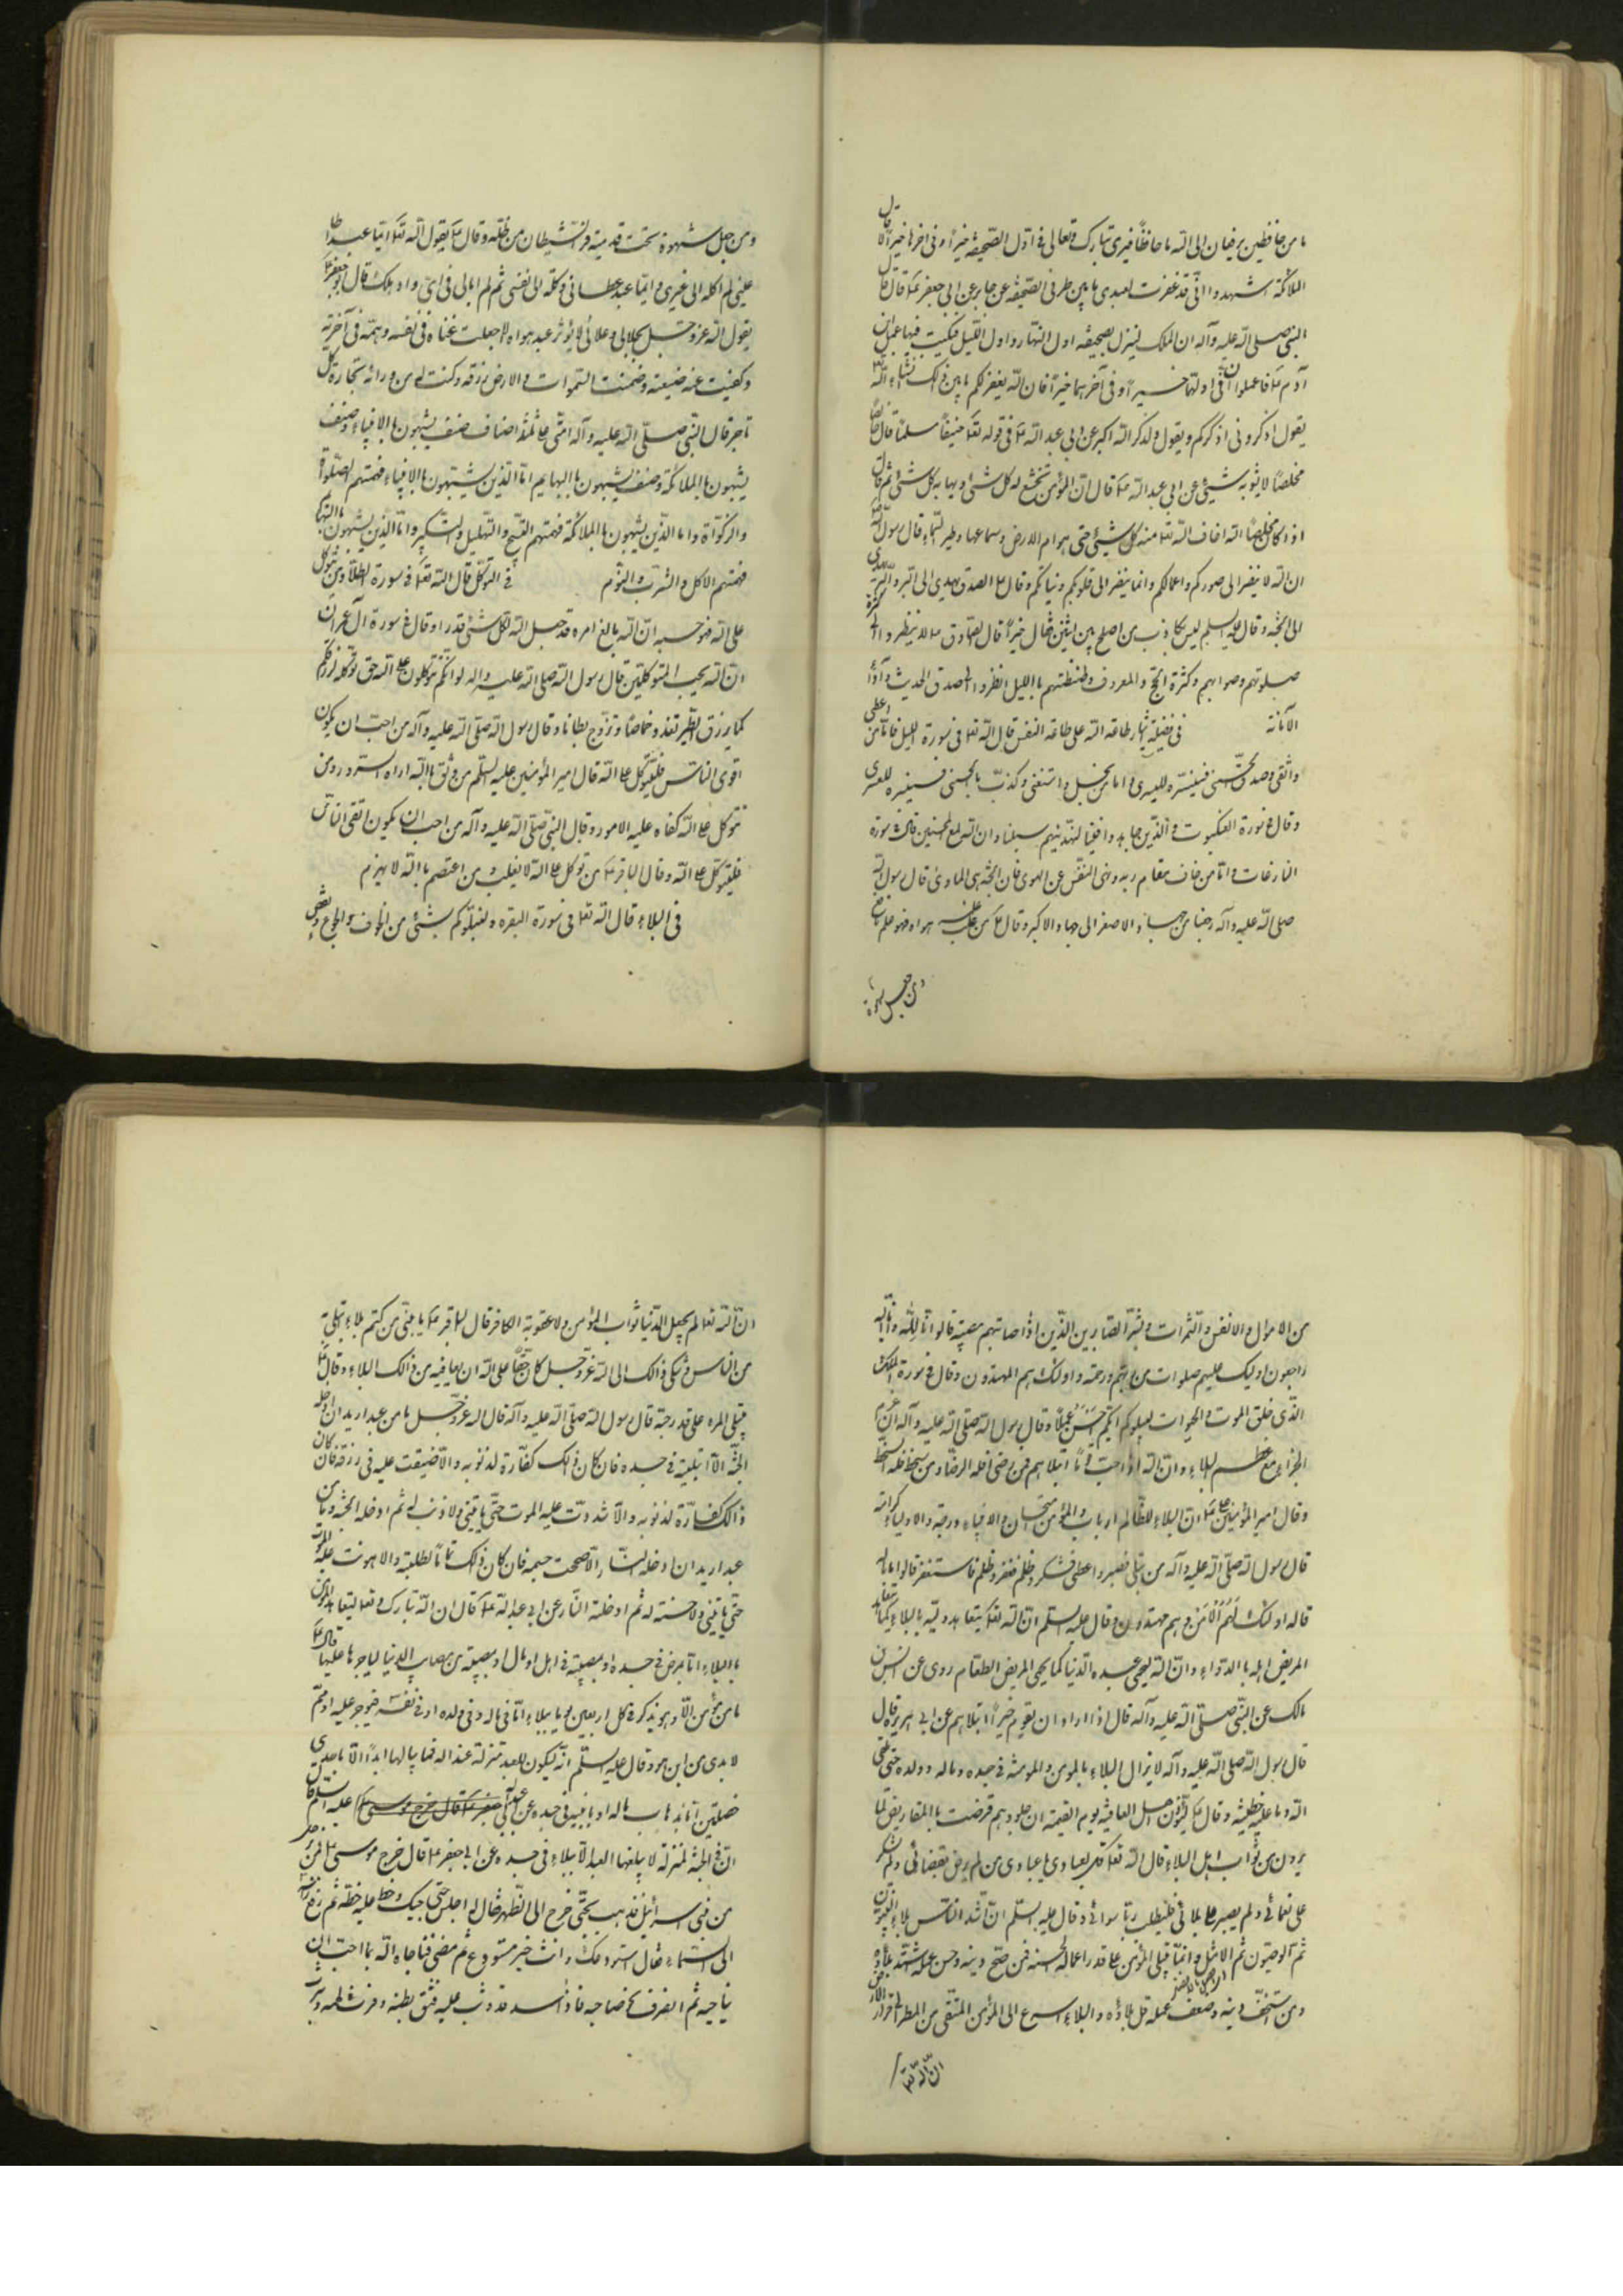 ما من حافظين يرفعان الى الله ما حافظا فيرى تبارك وتعالى في اول الصحيفة خيرا وفي اخرها خيرا الا قال
الملائكة اشهدوا انى قد غفرت لعبدى ما بين طرفى الصحيفة عن جابر عن ابى جعفر ع قال قال
النبى صلى الله عليه وآله ان الملك لينزل بصحيفه اول النهار واول الليل فيكتب فيها عمل ابن
آدم ع فاعملوا فى اولها خيرا وفى آخرهما خيرا فان الله يغفر لكم ما بين ذلك ان شاء الله
يقول اذكرونى اذكركم ويقول ولذكر الله اكبر عن ابى عبد الله ع فى قوله تعا حنيفا مسلما قال خالصا
مخلصا لا يشوبه شيئ عن ابى عبد الله ع قال ان المؤمن تخشع له كل شئ ويهابه كل شئ ثم قال
اذا كان مخلصا لله اخاف الله تعا منه كل شيئ حتى هوام الارض وسباعها وطير السماء قال رسول الله
ان الله لا ينظر الى صوركم واعمالكم وانما ينظر الى قلوبكم ونياتكم وقال ع الصدق يهدى الى البر والبر يهدى
الى الجنة وقال عليه السلم ليس بكاذب من اصلح بين اثنين فقال خيرا قال الصادق ع لا تنظروا الى كثرة
صلوتهم وصوامهم وكثرة الحج والمعروف وطنطنتهم بالليل انظروا الى صدق الحديث وآداء
الامانة فى فضيلة ايثار طاعة الله على طاعة النفس قال الله تعا فى سورة الليل فاما من اعطى
واتقى وصدق بالحسنى فسنيسره لليسرى واما من بخل واستغنى وكذب بالحسنى فسنيسره للعسرى
وقال فى سورة العنكبوت والذين جاهدوا فينا لنهدينهم سبلنا وان الله لمع المحسنين قال فى سورة
النازعات واما من خاف مقام ربه ونهى النفس عن الهوى فان الجنة هى الماوى قال رسول الله
صلى الله عليه وآله رحبنا من جهاد الاصغر الى جهاد الاكبر وقال ع من غلب علمه هواه فهو علم نافع
ومن جعل شهوة
ومن جعل شهوة تحت قدميه فر الشيطان من ظله وقال ع يقول الله تعا ايما عبد اطا
عنى لم اكله الى غيرى وايما عبد عصانى وكلته الى نفسى ثم لم ابالى فى اى واد هلك قال ابو جعفر ع
يقول الله عز وجل بجلالى وعلائى لا يؤثر عبد هواه الا جعلت غناه فى نفسه وهمه فى آخرته
وكفيت عنه ضيعته وضمنت السموات والارض رزقه وكنت له من وراء تجارة كل
تاجر قال النبى صلى الله عليه وآله امتى على ثلثة اصناف صنف يشبهون بالانبياء وصنف
يشبهون بالملائكة وصنف يشبهون بالبهايم اما الذين يشبهون بالانبياء فهمتهم الصلوة
والزكوة واما الذين يشبهون بالملائكة فهمتهم التسبيح والتهليل والتكبير واما الذين يشبهون بالبهايم
فهمتهم الاكل والشرب والنوم فى التوكل قال الله تعا فى سورة الطلاق ومن يتوكل
على الله فهو حسبه ان الله بالغ امره قد جعل الله لكل شئ قدرا وقال فى سورة آل عمران
ان الله يحب المتوكلين قال رسول الله صلى الله عليه واله لو انكم تتوكلون على الله حق توكله لرزقكم
كما يرزق الطير تغدو خماصا وتروح بطانا وقال رسول الله صلى الله عليه وآله من احب ان يكون
اقوى الناس فليتوكل على الله قال امير المؤمنين عليه السلم من وثق بالله اراه السرور ومن
توكل على الله كفاه عليه الامور وقال النبى صلى الله عليه وآله من احب ان يكون اتقى الناس
فليتوكل على الله وقال الباقر ع من توكل على الله لا يغلب ومن اعتصم بالله لا يهزم
فى البلاء قال الله تعا فى سورة البقره ولنبلونكم بشئ من الخوف والجوع ونقص
من الاموال والانفس والثمرات وبشر الصابرين الذين اذا اصابتهم مصيبة قالوا انا لله وانا اليه
راجعون اوليك عليهم صلوات من ربهم ورحمة واولئك هم المهتدون وقال فى سورة الملك
الذى خلق الموت والحيوات ليبلوكم ايكم احسن عملا وقال رسول الله صلى الله عليه وآله ان عظم
الجزاء مع عظم البلاء وان الله اذا احب قوما ابتلاهم فمن رضى فله الرضا ومن سخط فله السخط
وقال امير المؤمنين ع ان البلاء للظالم ادب وللمؤمن امتحان وللانبياء درجة وللاولياء كرامة
قال رسول الله صلى الله عليه وآله من ابتلى فصبر واعطى فشكر وظلم فغفر وظلم فاستغفر قالوا ما باله
قاله اولئك لهم الامن وهم مهتدون وقال عليه السلم ان الله تعا ليتعاهد وليه بالبلاء كما يتعاهد
المريض اهله بالدواء وان الله ليحمى عبده الدنيا كما يحمى المريض الطعام روى عن انس بن
مالك عن النبى صلى الله عليه وآله قال اذا اراد الله بقوم خيرا ابتلاهم عن ابى هريره قال
قال رسول الله صلى الله عليه وآله لا يزال البلاء بالمومن والمومنة فى جسده وماله وولده حتى يلقى
الله وما عليه خطيئة وقال ع ليودون اهل العافية يوم القيمة ان جلودهم قرضت بالمقاريض لما
يرون من ثواب اهل البلاء قال الله تعا قل لعبادى يا عبادى من لم يرض بقضائى ولم يشكر
على نعمائى ولم يصبر على بلائى فليطلب ربا سوائى وقال عليه السلم ان اشد الناس بلاء النبيون
ثم الوصيون ثم الامثل وانما يبتلى المؤمن على قدر اعماله الحسنة فمن صح دينه وحسن عمله اشتد بلاؤه
ومن سخف دينه وضعف عمله قل بلاؤه والبلاء اسرع الى المؤمن المتقى من المطر الى قرار الارض
ان الله تعا
ان الله تعا لم يجعل الدنيا ثواب المؤمن ولا عقوبة الكافر قال الباقر ع يا بنى من كتم بلاء ابتلى به
من الناس وشكى ذالك الى الله عز وجل كان حقا على الله ان يعافيه من ذالك البلاء وقال ع
يبتلى المرء على قدر حبه قال رسول الله صلى الله عليه وآله قال الله عز وجل ما من عبد اريد ان ادخله
الجنة الا ابتليته فى جسده فان كان ذلك كفارة لذنوبه والا ضيقت عليه فى رزقه فان كان
ذالك كفارة لذنوبه والا شددت عليه الموت حتى ياتينى ولا ذنب له ثم ادخله الجنة وما من
عبد اريد ان ادخله النار الا صححت جسمه فان كان ذلك تماما لطلبته والا هونت عليه الموت
حتى ياتينى ولا حسنة له ثم ادخلته النار عن ابى عبد الله ع قال ان الله تبارك وتعا ليتعاهد المؤمن
بالبلاء اما بمرض فى جسده او بمصيبة فى اهل او مال او مصيبة من مصايب الدنيا لياجره عليها قال ع
ما من مؤمن الا وهو يذكر فى كل اربعين يوما ببلاء اما فى ماله وفى ولده او فى نفسه فيوجر عليه او هم
لا يدرى من اين هو وقال عليه السلم انه ليكون للعبد منزلة عند الله فما ينالها ابدا الا باحدى
خصلتين اما بذهاب ماله او ببلية فى جسده عن عبد الله عليه السلام قال
ان فى الجنة لمنزلة لا يبلغها العبد الا ببلاء فى جسده عن ابى جعفر ع قال خرج موسى ع فمر برجل
من بنى اسرائيل فذهب به حتى خرج الى الظهر فقال له اجلس حتى اجيك وخط عليه خطة ثم رفع راسه
الى السماء فقال استودعك وانت خير مستودع ثم مضى فناجاه الله بما احب ان
يناجيه ثم انصرف نحو صاحبه فاذا اسد قد وثب عليه فشق بطنه وفرث لحمه وشرب